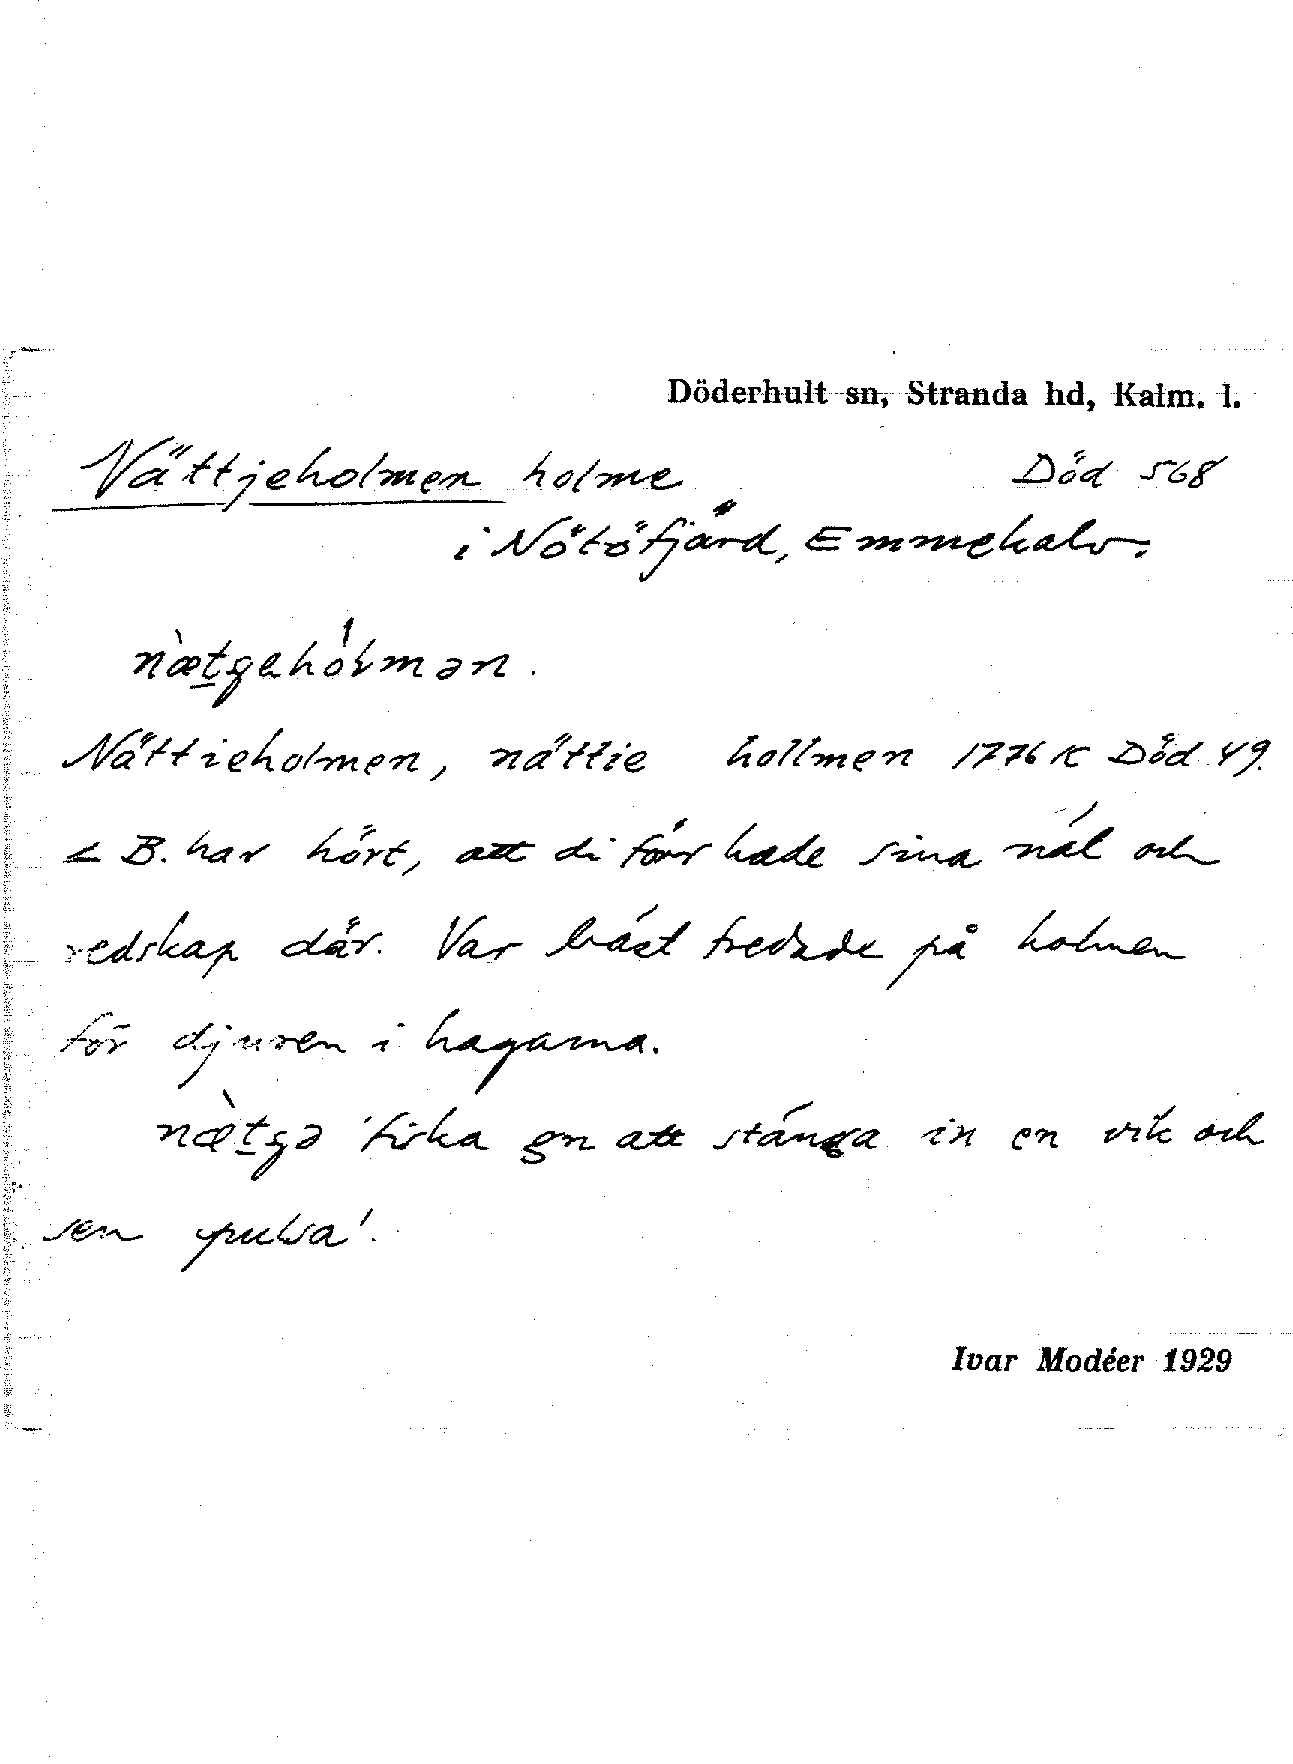 Döderhult sn, Stranda hd, Kalm. l.
Nättjeholmen holme Död 568
i Nötöfjärd, Emmekalv.
nætgehólmən.
Nättieholmen, nättie hollmen 1776 K Död 49.
< B. har hört, att di förr hade sina nät och
redskap där. Var bäst fredade på holmen
för djuren i hagarna.
nætgə 'fiska gn att stänga in en vik och
sen pulsa'.
Ivar Modéer 1929